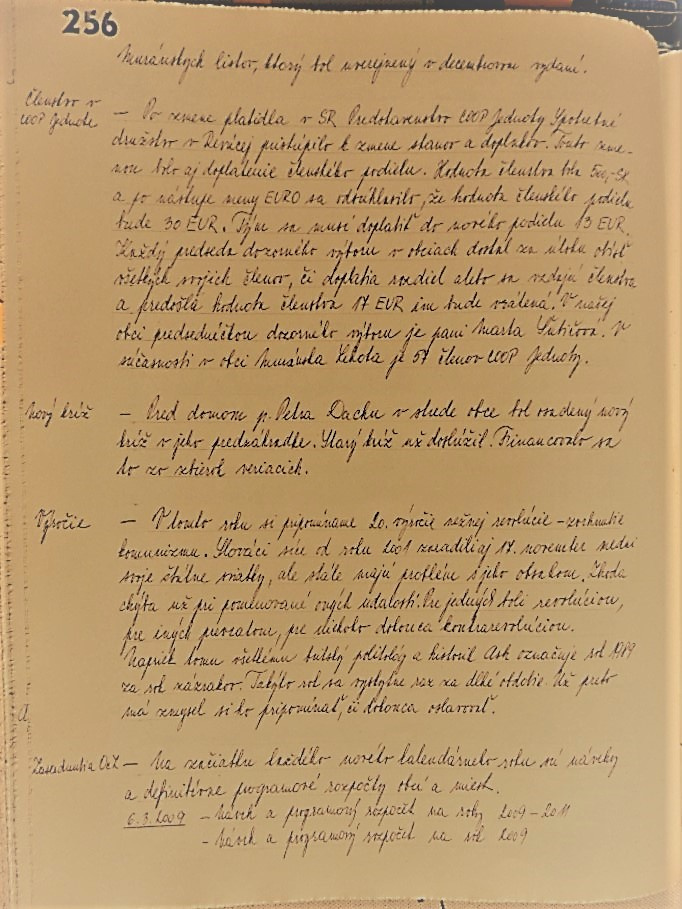 256
Muránskych listov, ktorý bol uverejnený v decembrovom vydaní.
Členstvo v
COOP Jednote
— Po zmene platidla v SR Predstavenstvo COOP Jednoty Spotrebné
družstvo v Revúcej pristúpilo k zmene stanov a doplnkov. Touto zme-
nou bolo aj doplatenie členského podielu. Hodnota členstva bola 500,-Sk
a po nástupe meny EURO sa odsúhlasilo, že hodnota členského podielu
bude 30 EUR. Tým sa musí doplatiť do nového podielu 13 EUR.
Každý predseda dozorného výboru v obciach dostal za úlohu obísť
všetkých svojich členov, či doplatia rozdiel alebo sa vzdajú členstva
a predošlá hodnota členstva 17 EUR im bude vrátená. V našej
obci predsedníčkou dozorného výboru je pani Marta. V
súčasnosti v obci Muránska Lehota je 57 členov COOP Jednoty.
Nový kríž
— Pred domom p. Petra Dacku v strede obce bol osadený nový
kríž v jeho predzáhradke. Starý kríž už doslúžil. Financovalo sa
to zo zbierok veriacich.
Výročie
— V tomto roku si pripomíname 20. výročie nežnej revolúcie – zvrhnutie
komunizmu. Slováci síce od roku 2001 zaradili aj 17. november medzi
svoje štátne sviatky, ale stále majú problém s jeho obsahom. Zhoda
chýba už pri pomenované oných udalostí. Pre jedných boli revolúciou,
pre iných prevratom, pre niekoho dokonca kontrarevolúciou.
Napriek tomu všetkému britský politológ a historik Ash označuje rok 1989
za rok zázrakov. Takýto rok sa vyskytne raz za dlhé obdobie. Už preto
má zmysel si ho pripomínať, či dokonca oslavovať.
Zasadnutia OcZ
— Na začiatku každého nového kalendárneho roku sú návrhy
a definitívne programové rozpočty obcí a miest.
6.3.2009 – Návrh a programový rozpočet na roky 2009 – 2011
– Návrh a programový rozpočet na rok 2009